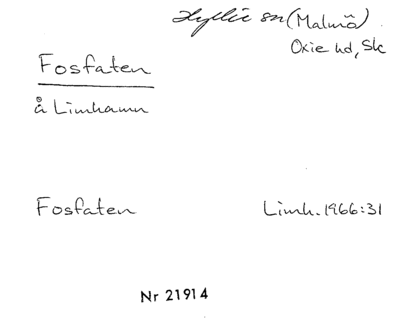 Hyllie sn (Malmö)
Oxie hd, Sk
Fosfaten
å Limhamn
Fosfaten Limh. 1966:31
Nr 21914